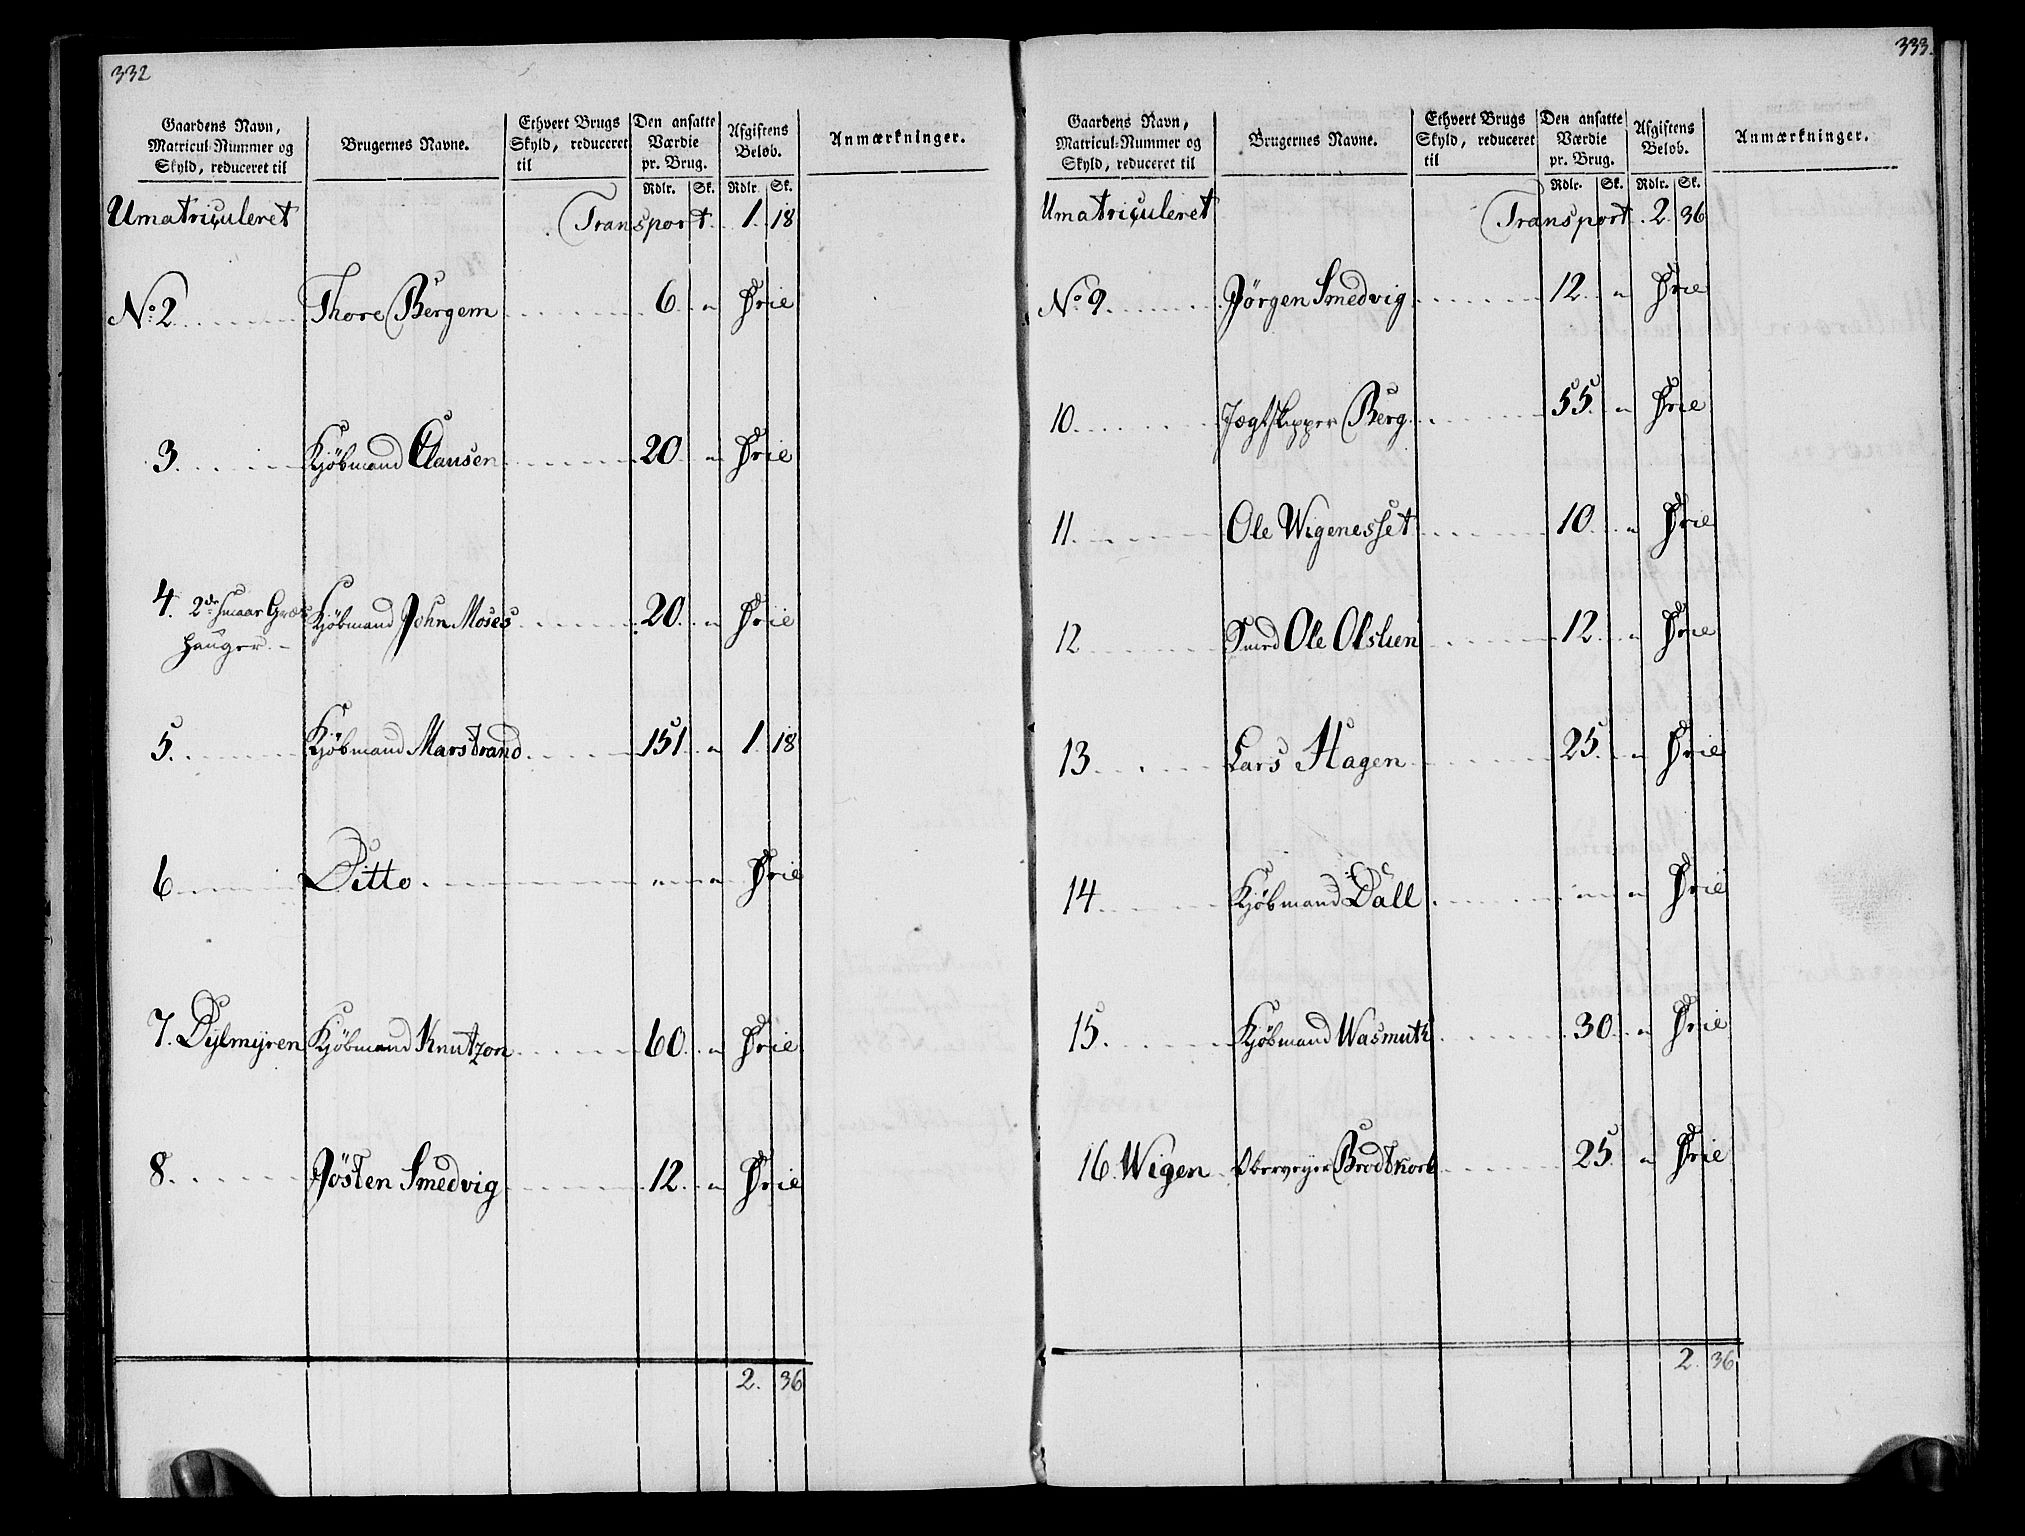 332
Gaardens Navn, Matricul-Nummer og Skyld, reduceret til | Brugernes Navne. | Ethvert Brugs Skyld, reduceret til | Den ansatte Værdie pr. Brug. | Afgiftens Beløb. | Anmærkninger.
Rdlr. Sk. Rdlr. Sk.
Umatriculeret Transport 1. 18
No. 2 Thore Bergem 6 " Frie
3. Kjöbmand Clausen 20 " Frie
4. 2de smaae Græs Kjöbmand John Moses 20 " Frie
hauger
5. Kjöbmand Marstrand 151 " 1 18
6 Ditto " " Frie
7. Dylmyren Kjöbmand Knutzon 60 " Frie
8. Jösten Smedvig 12 " Frie
2. 36
333.
Gaardens Navn, Matricul-Nummer og Skyld, reduceret til | Brugernes Navne. | Ethvert Brugs Skyld, reduceret til | Den ansatte Værdie pr. Brug. | Afgiftens Beløb. | Anmærkninger.
Rdlr. Sk. Rdlr. Sk.
Umatriculeret Transport 2. 36
No. 9 Jörgen Smedvig 12 " Frie
10. Jægtskipper Berg 55 " Frie
11. Ole Wigenesset 10 " Frie
12 Smed Ole Olsluen 12 " Frie
13. Lars Hagen 25 " Frie
14. Kjöbmand Dall " " Frie
15. Kjöbmand Wasmuth 30 " Frie
16. Wigen Oberveyer Brodtkorb 25 " Frie
2. 36